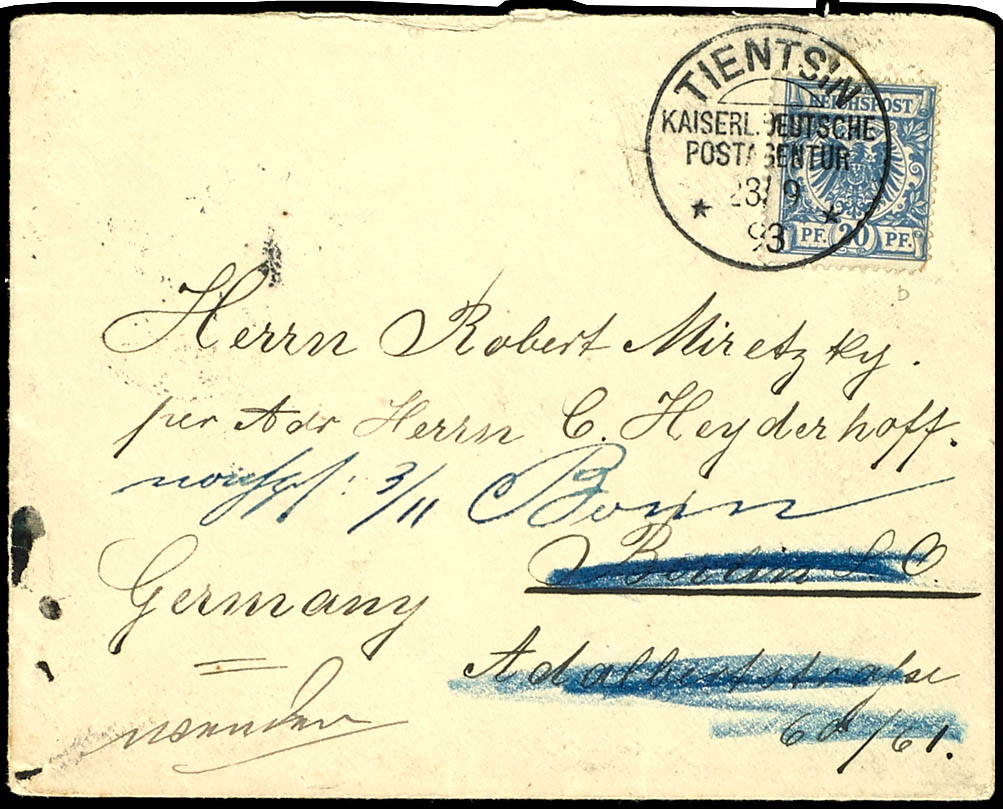 TIENTSIN
KAISERL. DEUTSCHE
POSTAGENTUR
23/9
93
REICHSPOST
PF. 20 PF.
b
Herrn Robert Miretzky.
per Adr Herrn C. Heyderhoff.
3/11 Bonn
Berlin S. O.
Germany
Adalbertstrasse
60/61.